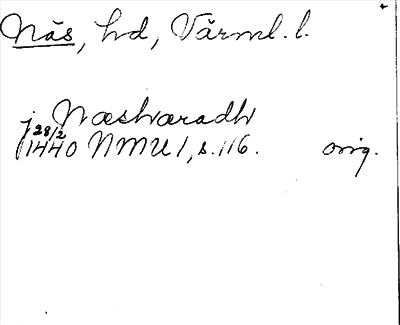 Näs, hd, Värml. l.
j Næshæradh
28/2 1440 NMU 1, s. 116. orig.